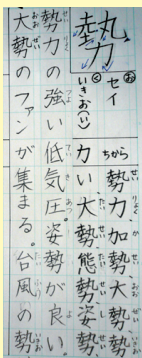 勢
おん セイ
くん いきお(い)
力 ちから
勢力加勢大勢勢
い大勢態勢姿勢
勢力の強い低気圧。姿勢が良い。
大勢のファンが集まる。台風の勢